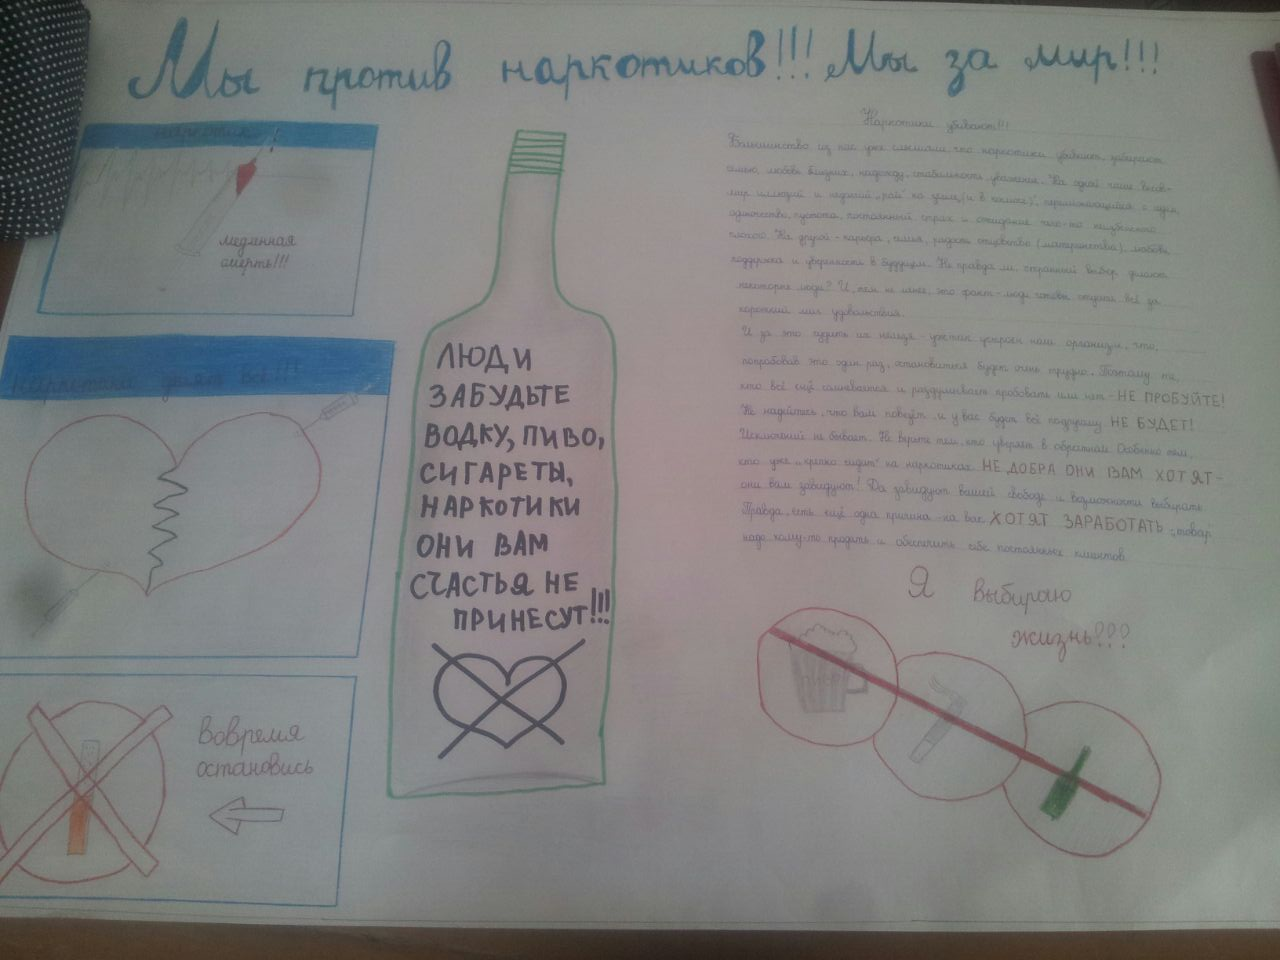 Мы против наркотиков!!! Мы за мир!!!
наркотик
медленная
смерть!!!
Наркотики убивают!!!
ЛЮДИ
ЗАБУДЬТЕ
ВОДКУ, ПИВО,
СИГАРЕТЫ,
НАРКОТИКИ
ОНИ ВАМ
СЧАСТЬЯ НЕ
ПРИНЕСУТ!!!
Вовремя
остановись
из нас уже слышали, что наркотики убивают, забирают
семью, любовь близких, надежду, стабильность, уважение. На одной чаше весов-
мир иллюзий и
одиночество, пустота, постоянный страх и ожидание чего-то неизбежного
плохого. На другой - карьера, семья, радость отцовства (материнства), любовь,
поддержка и уверенность в будущем. Не правда ли, странный выбор делают
некоторые люди? И, тем не менее, это факт - люди готовы отдать всё за
короткий миг удовольствия.
И за это судить их нельзя - уж так устроен наш организм, что,
попробовав это один раз, остановиться будет очень трудно. Поэтому те,
кто всё ещё сомневается и раздумывает пробовать или нет - НЕ ПРОБУЙТЕ!
Не надейтесь, что вам повезёт и у вас будет всё по-другому НЕ БУДЕТ!
Исключений не бывает. Не верьте тем, кто уверяет в обратном. Особенно тем,
кто уже „крепко сидит" на наркотиках. НЕ ДОБРА ОНИ ВАМ ХОТЯТ -
они вам завидуют! Да завидуют вашей свободе и возможности выбирать.
Правда, есть ещё одна причина - на вас ХОТЯТ ЗАРАБОТАТЬ - „товар"
надо кому-то продать и обеспечить себе постоянных клиентов
Я выбираю
жизнь???
пиво